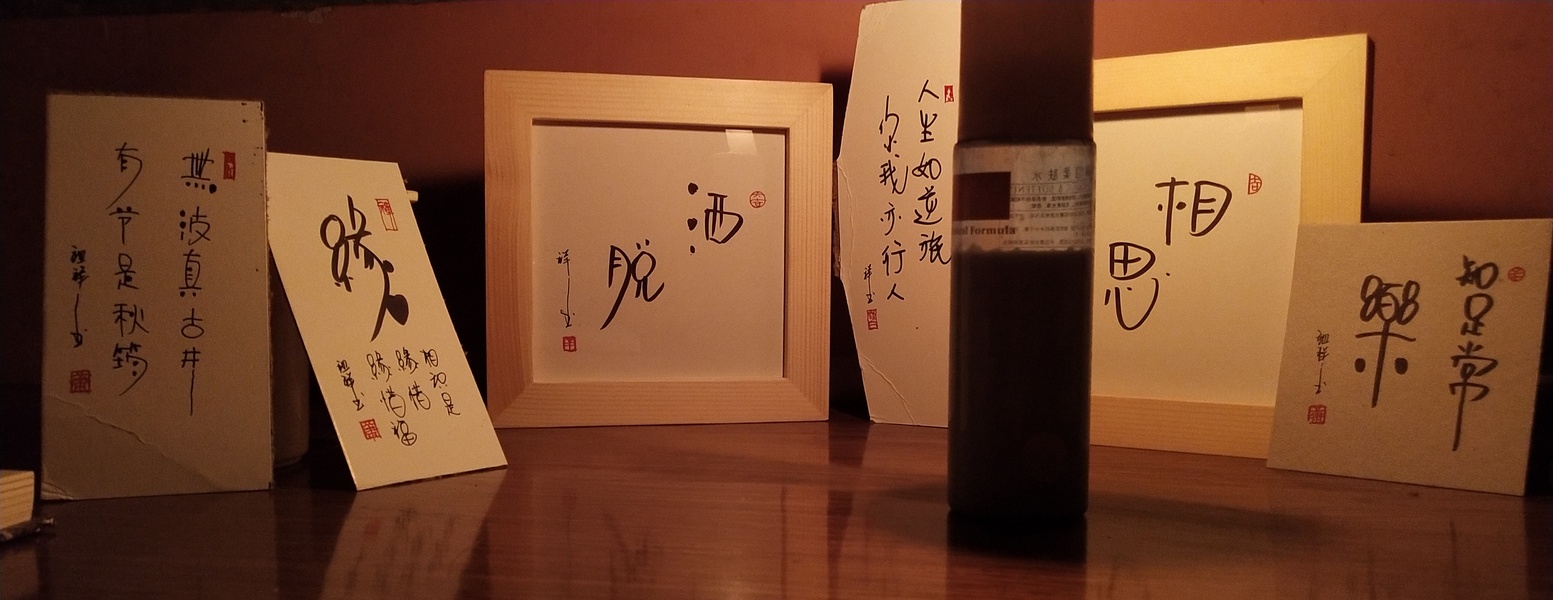 無波真古井
有节是秋筠
祖祥书
缘
相知是
缘惜
缘惜福
祖祥书
洒
脱
祥书
人生如逆旅
你我亦行人
祥书
Formula
相
思
知足常
樂
祖祥书